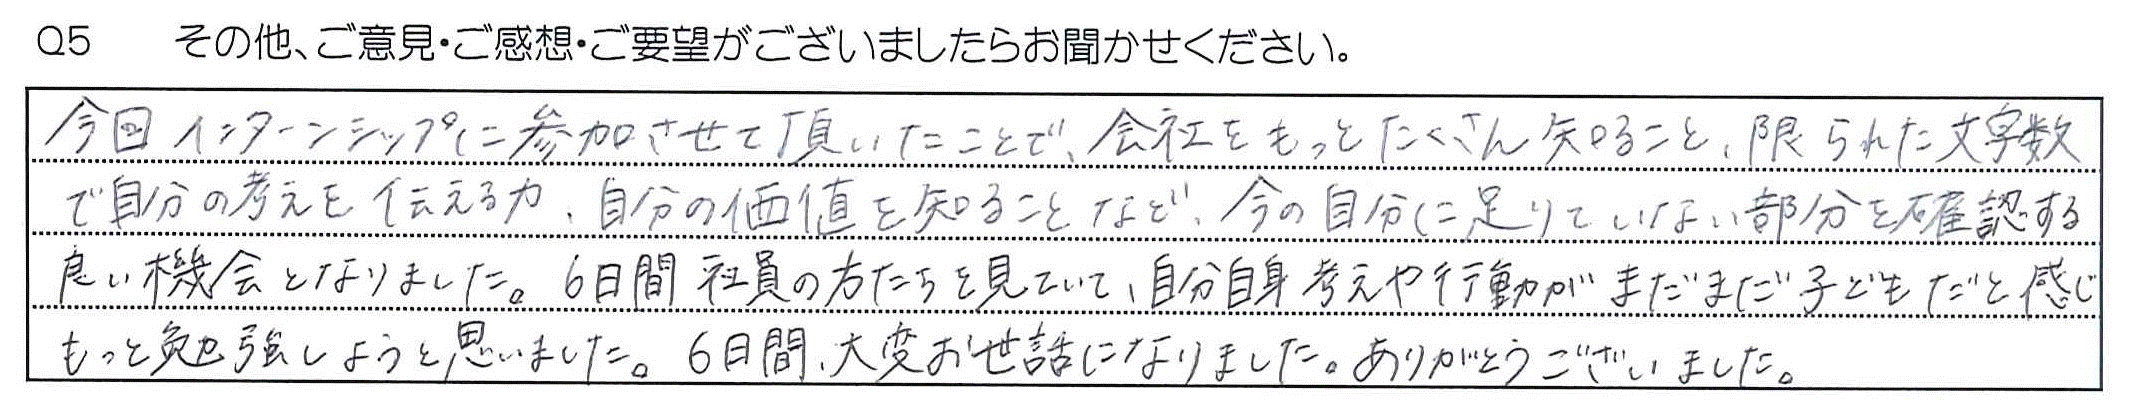 Q5 その他、ご意見・ご感想・ご要望がございましたらお聞かせください。
今回インターンシップに参加させて頂いたことで、会社をもっとたくさん知ること、限られた文字数
で自分の考えを伝える力、自分の価値を知ることなど、今の自分に足りていない部分を確認する
良い機会となりました。6日間社員の方たちを見ていて、自分自身考えや行動がまだまだ子どもだと感じ
もっと勉強しようと思いました。6日間、大変お世話になりました。ありがとうございました。